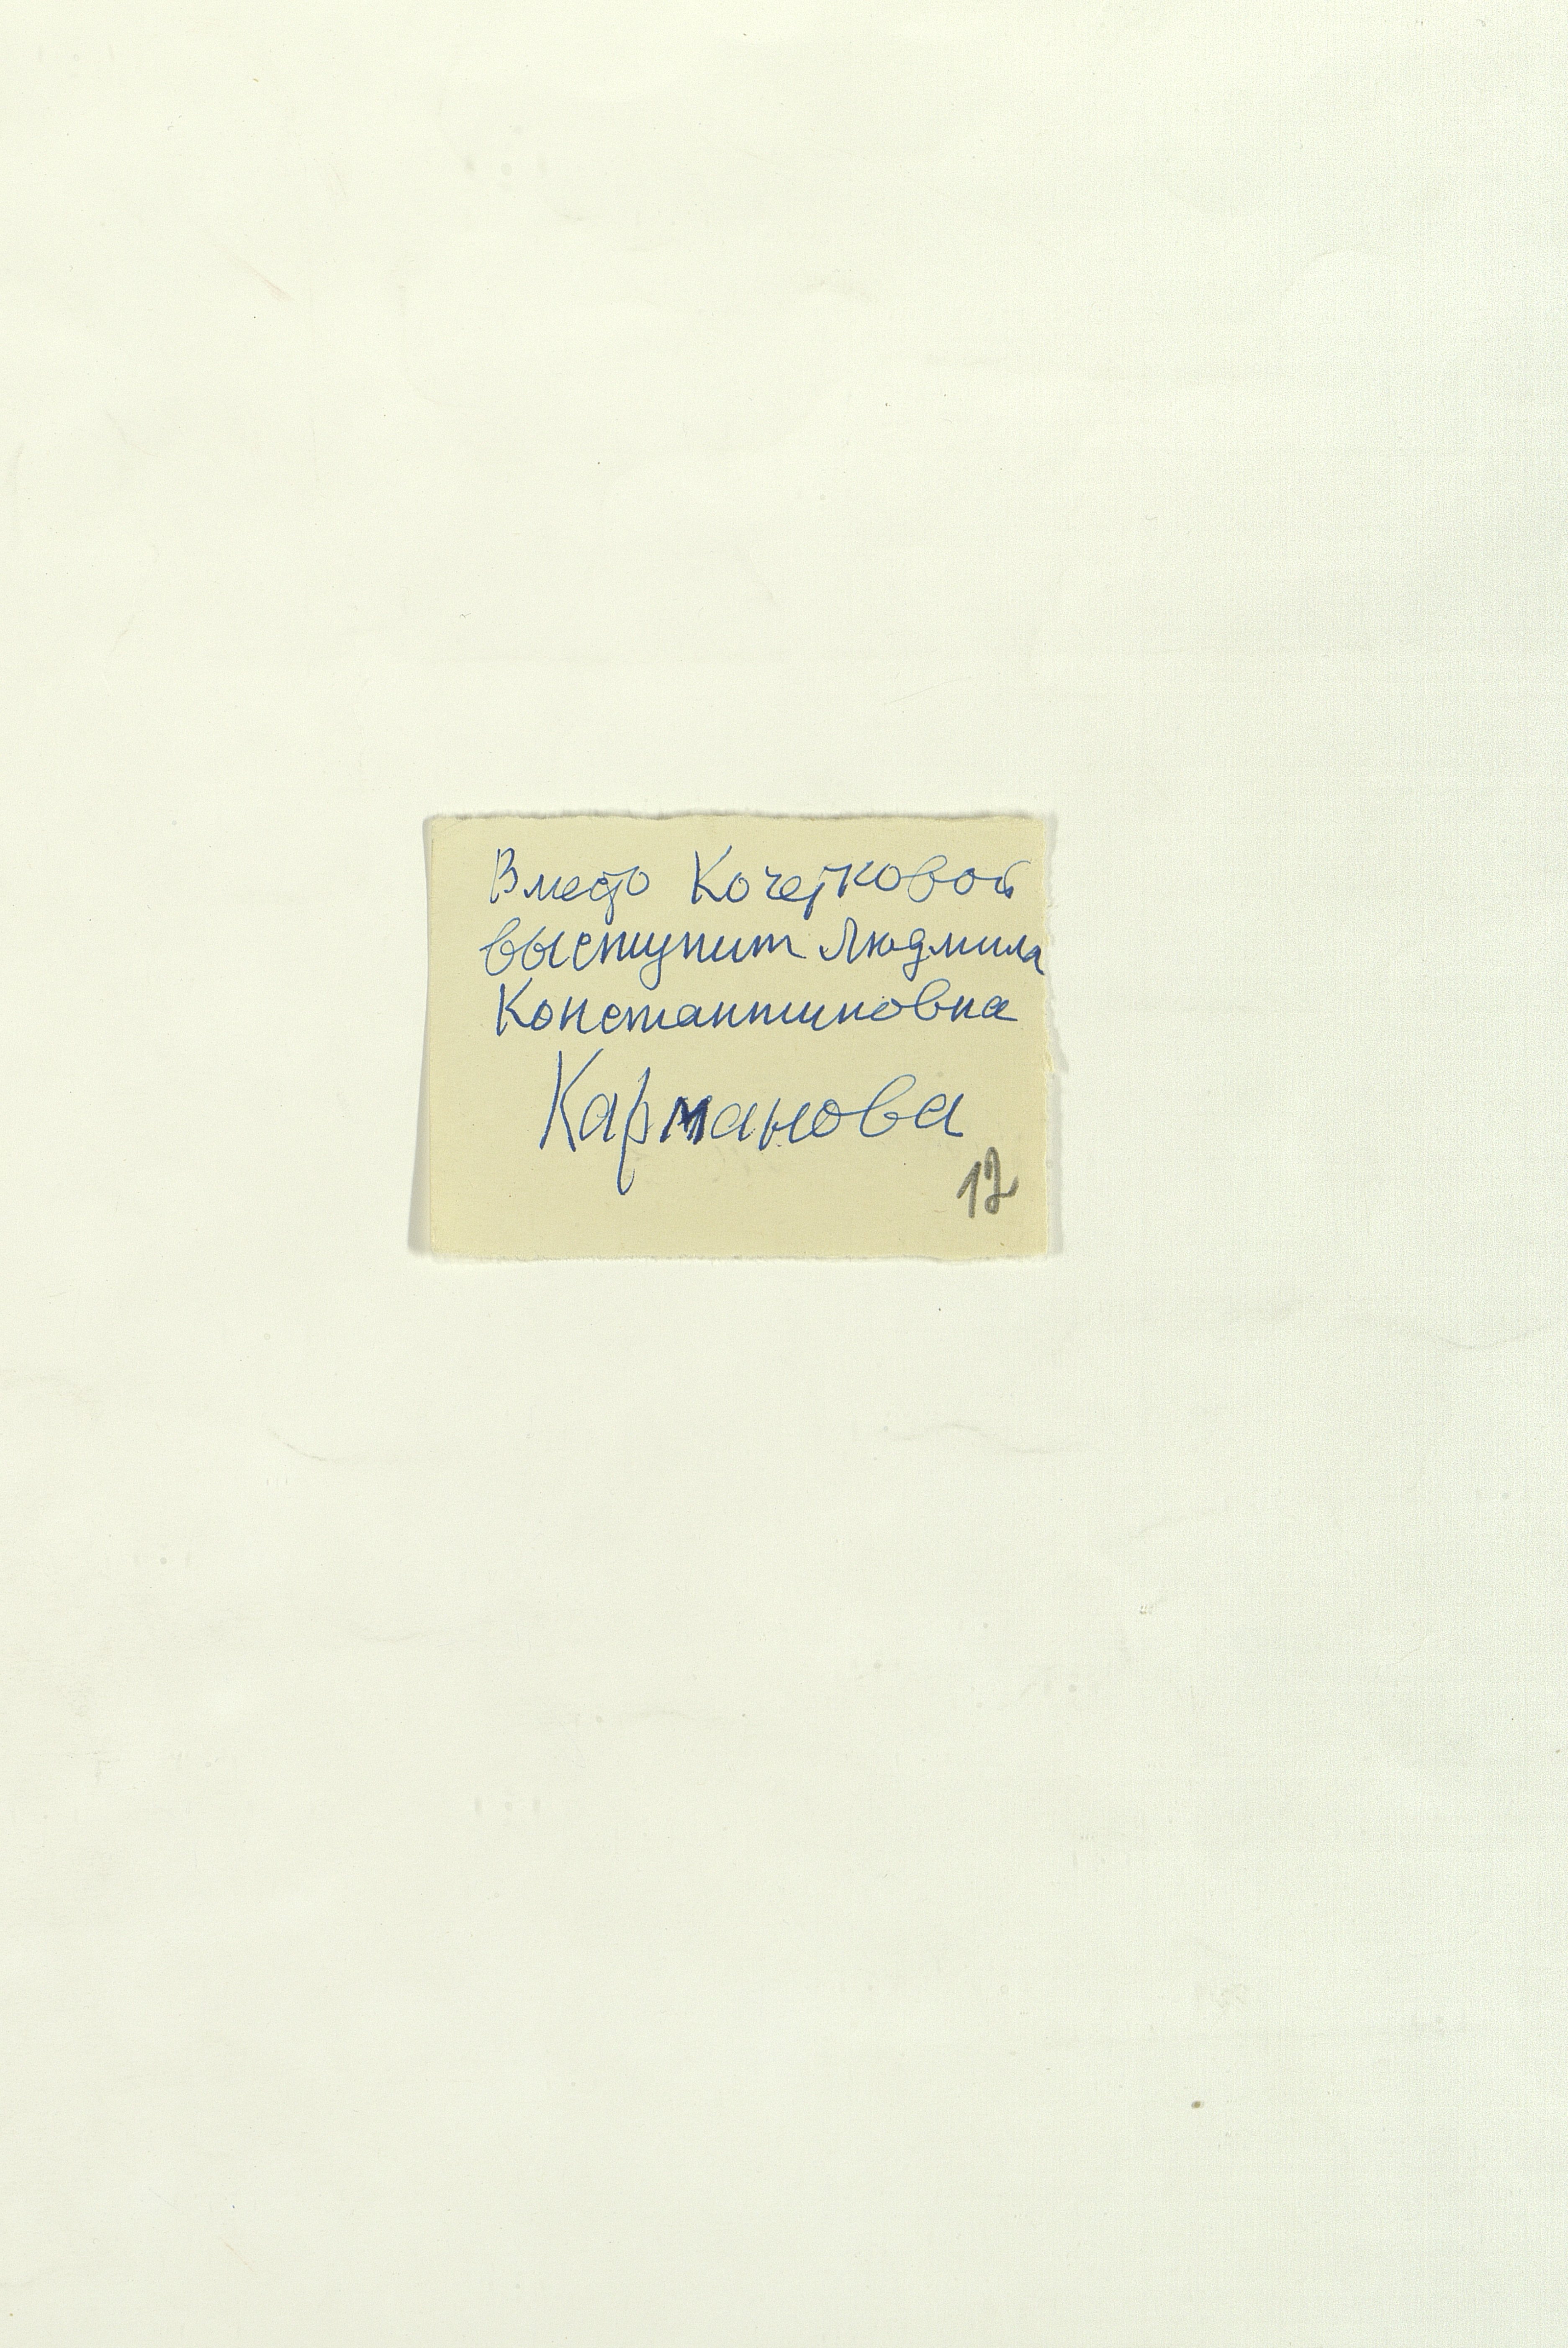 Вместо Кочетковой
выступит Людмила
Константиновна
Карманова
12